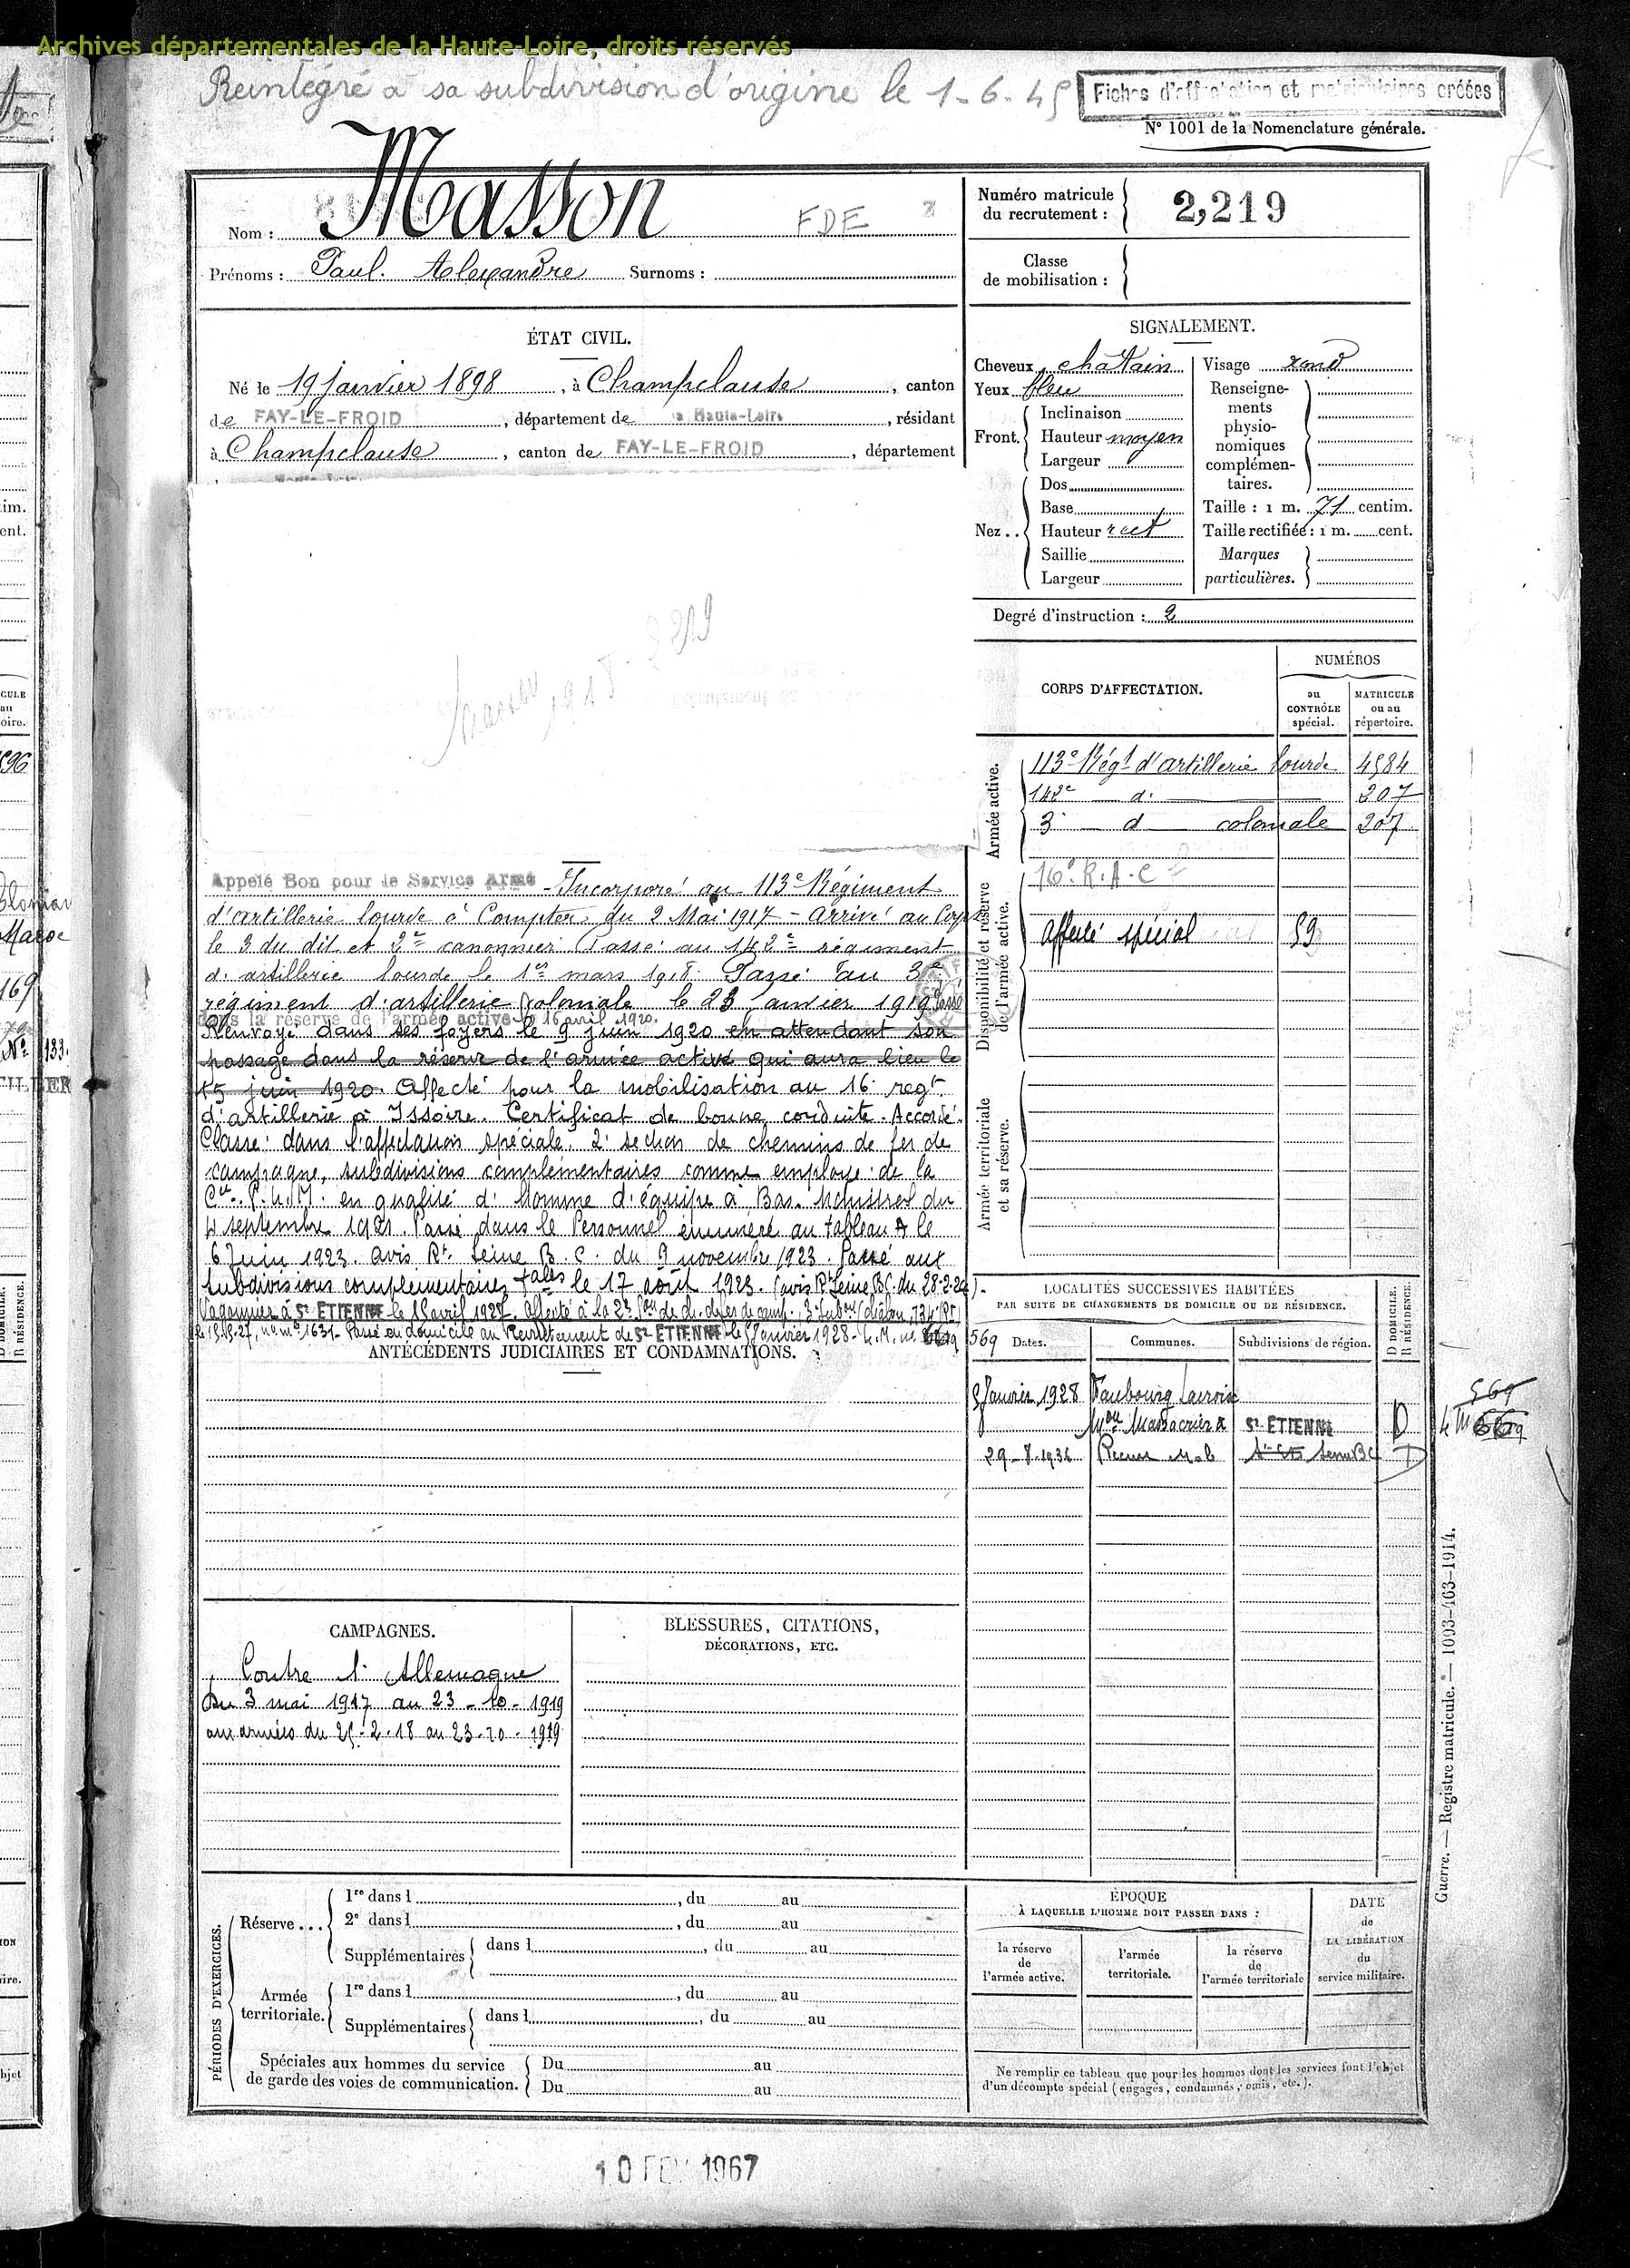 Archives départementales de la Haute-Loire, droits réservés
Réintégré à sa subdivision d'origine le 1-6-45
Fiches d'affectation et matriculaires créées
N° 1001 de la Nomenclature générale.
Nom : Masson FDE
Prénoms : Paul. Alexandre Surnoms :
Numéro matricule du recrutement : 2,219
Classe de mobilisation :
ÉTAT CIVIL.
Né le 19 janvier 1898, à Champclause, canton
de FAY-LE-FROID, département de la Haute-Loire, résidant
à Champclause, canton de FAY-LE-FROID, département
SIGNALEMENT.
Cheveux châtain
Yeux bleu
Front. Inclinaison
Hauteur moyen
Largeur
Nez .. Dos
Base
Hauteur rect
Saillie
Largeur
Visage rond
Renseigne-
ments
physio-
nomiques
complémen-
taires.
Taille : 1 m. 71 centim.
Taille rectifiée : 1 m. cent.
Marques
particulières.
Degré d'instruction : 2
Masson 1918 - 2219
CORPS D'AFFECTATION.
NUMÉROS
au CONTRÔLE spécial.
MATRICULE ou au répertoire.
Armée active.
113e Régt d'artillerie lourde 4584
142e d. 207
3e d coloniale 207
Disponibilité et réserve de l'armée active.
16e R.A.C
Affecté spécial 59
Armée territoriale et sa réserve.
Appelé Bon pour le Service Armé - Incorporé au 113e Régiment
d'artillerie lourde à Compter du 2 Mai 1917 - arrivé au Corps
le 3 du dit et 2e canonnier. Passé au 142e régiment
d'artillerie lourde le 1er mars 1918. Passé au 3e
régiment d'artillerie coloniale le 23 janvier 1919 Passé
dans la réserve de l'armée active le 16 avril 1920.
Renvoyé dans ses foyers le 9 juin 1920 en attendant son
passage dans la réserve de l'armée active qui aura lieu le
15 juin 1920. Affecté pour la mobilisation au 16e regt
d'artillerie à Issoire. Certificat de bonne conduite. Accordé.
Classé dans l'affectation spéciale, 2e section de chemins de fer de
campagne, subdivisions complémentaires comme employé de la
Cie P.L.M. en qualité d'Homme d'équipe à Bas-Monistrol du
4 septembre 1921. Passé dans le Personnel énuméré au tableau A le
6 Juin 1923. avis Rt Seine B.C. du 9 novembre 1923. Passé aux
subdivisions complémentaires tales le 17 août 1923. (avis Rt Seine B.C. du 28-2-24).
Wagonnier à St ETIENNE le 1 avril 1927. Affecté à la 2e Son de ch. de fer de camp.
le 15-12-27, no me 1631. Passé en domicile au Recrutement de St ETIENNE le 9 Janvier 1928 - L.M. no 569
ANTÉCÉDENTS JUDICIAIRES ET CONDAMNATIONS.
LOCALITÉS SUCCESSIVES HABITÉES
PAR SUITE DE CHANGEMENTS DE DOMICILE OU DE RÉSIDENCE.
Dates. Communes. Subdivisions de région. D DOMICILE. R RÉSIDENCE.
9 Janvier 1928 Faubourg Lacroix
Mon Massacrier St ETIENNE D
29-8-1936 Seine BC D
569
CAMPAGNES.
Contre l'Allemagne
Du 3 mai 1917 au 23-10-1919
aux armées du 25-2-18 au 23-10-1919
BLESSURES, CITATIONS,
DÉCORATIONS, ETC.
Guerre. — Registre matricule. — 1093-463-1914.
PÉRIODES D'EXERCICES.
Réserve ...
1re dans l , du au
2e dans l , du au
Supplémentaires dans l , du au
Armée territoriale.
1re dans l , du au
Supplémentaires dans l , du au
Spéciales aux hommes du service
de garde des voies de communication.
Du au
Du au
ÉPOQUE
À LAQUELLE L'HOMME DOIT PASSER DANS :
la réserve de l'armée active.
l'armée territoriale.
la réserve de l'armée territoriale
DATE de LA LIBÉRATION du service militaire.
Ne remplir ce tableau que pour les hommes dont les services font l'objet
d'un décompte spécial (engagés, condamnés, omis, etc.).
10 FEV 1967